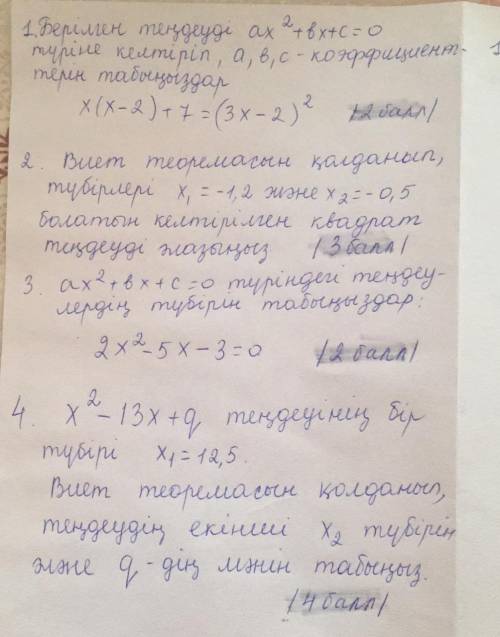 1. Берілген теңдеуді ax²+bx+c=0
түріне келтіріп, a, b, c - коэффициент-
терін табыңыздар
x(x-2)+7=(3x-2)² /2 балл/
2. Виет теоремасын қолданып,
түбірлері x₁=-1,2 және x₂=-0,5
болатын келтірілген квадрат
теңдеуді жазыңыз /3 балл/
3. ax²+bx+c=0 түріндегі теңдеу-
лердің түбірін табыңыздар:
2x²-5x-3=0 /2 балл/
4. x²-13x+q теңдеуінің бір
түбірі x₁=12,5.
Виет теоремасын қолданып,
теңдеудің екінші x₂ түбірін
және q-дің мәнін табыңыз.
/4 балл/
1